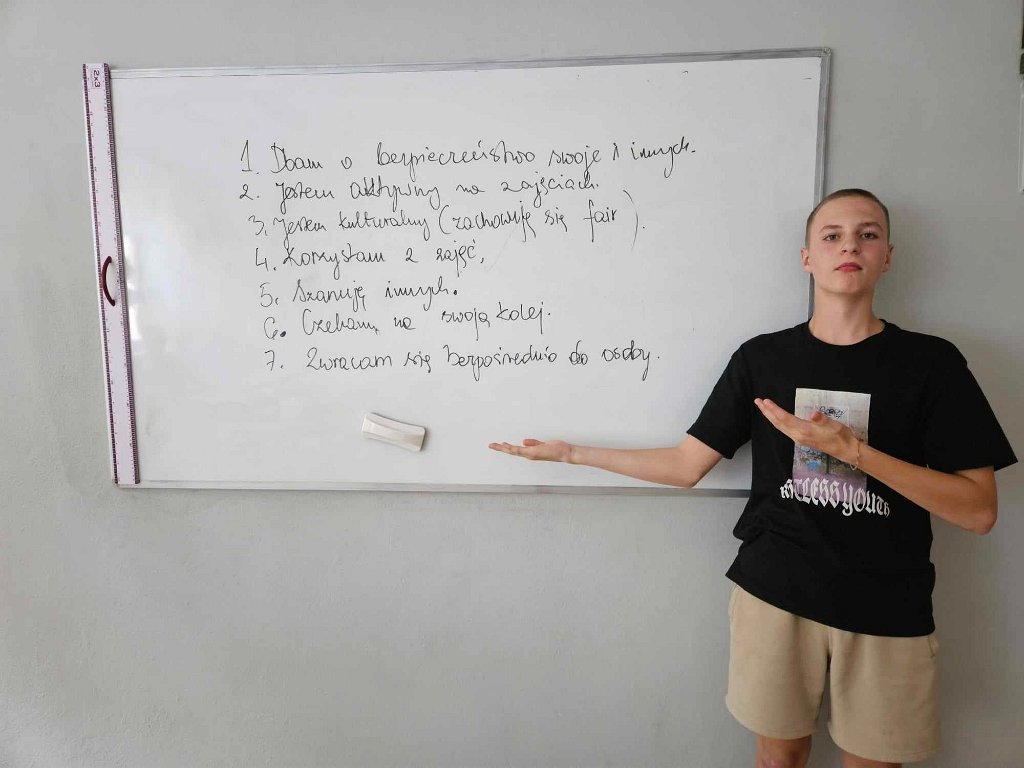 2x3
1. Dbam o bezpieczeństwo swoje i innych.
2. Jestem aktywny na zajęciach.
3. Jestem kulturalny (zachowuję się fair).
4. Korzystam z zajęć.
5. Szanuję innych.
6. Czekam na swoją kolej.
7. Zwracam się bezpośrednio do osoby.
STLESS YOUTH